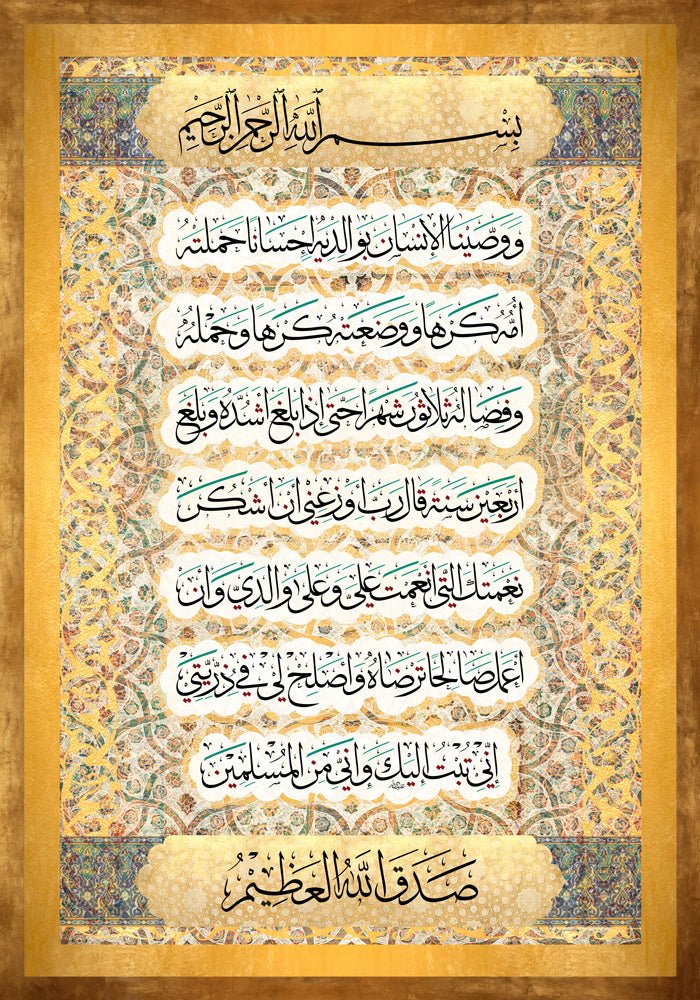 بِسْمِ اللَّهِ الرَّحْمَنِ الرَّحِيمِ
وَوَصَّيْنَا الْإِنْسَانَ بِوَالِدَيْهِ إِحْسَانًا حَمَلَتْهُ
أُمُّهُ كُرْهًا وَوَضَعَتْهُ كُرْهًا وَحَمْلُهُ
وَفِصَالُهُ ثَلَاثُونَ شَهْرًا حَتَّى إِذَا بَلَغَ أَشُدَّهُ وَبَلَغَ
أَرْبَعِينَ سَنَةً قَالَ رَبِّ أَوْزِعْنِي أَنْ أَشْكُرَ
نِعْمَتَكَ الَّتِي أَنْعَمْتَ عَلَيَّ وَعَلَى وَالِدَيَّ وَأَنْ
أَعْمَلَ صَالِحًا تَرْضَاهُ وَأَصْلِحْ لِي فِي ذُرِّيَّتِي
إِنِّي تُبْتُ إِلَيْكَ وَإِنِّي مِنَ الْمُسْلِمِينَ
صَدَقَ اللَّهُ الْعَظِيمُ